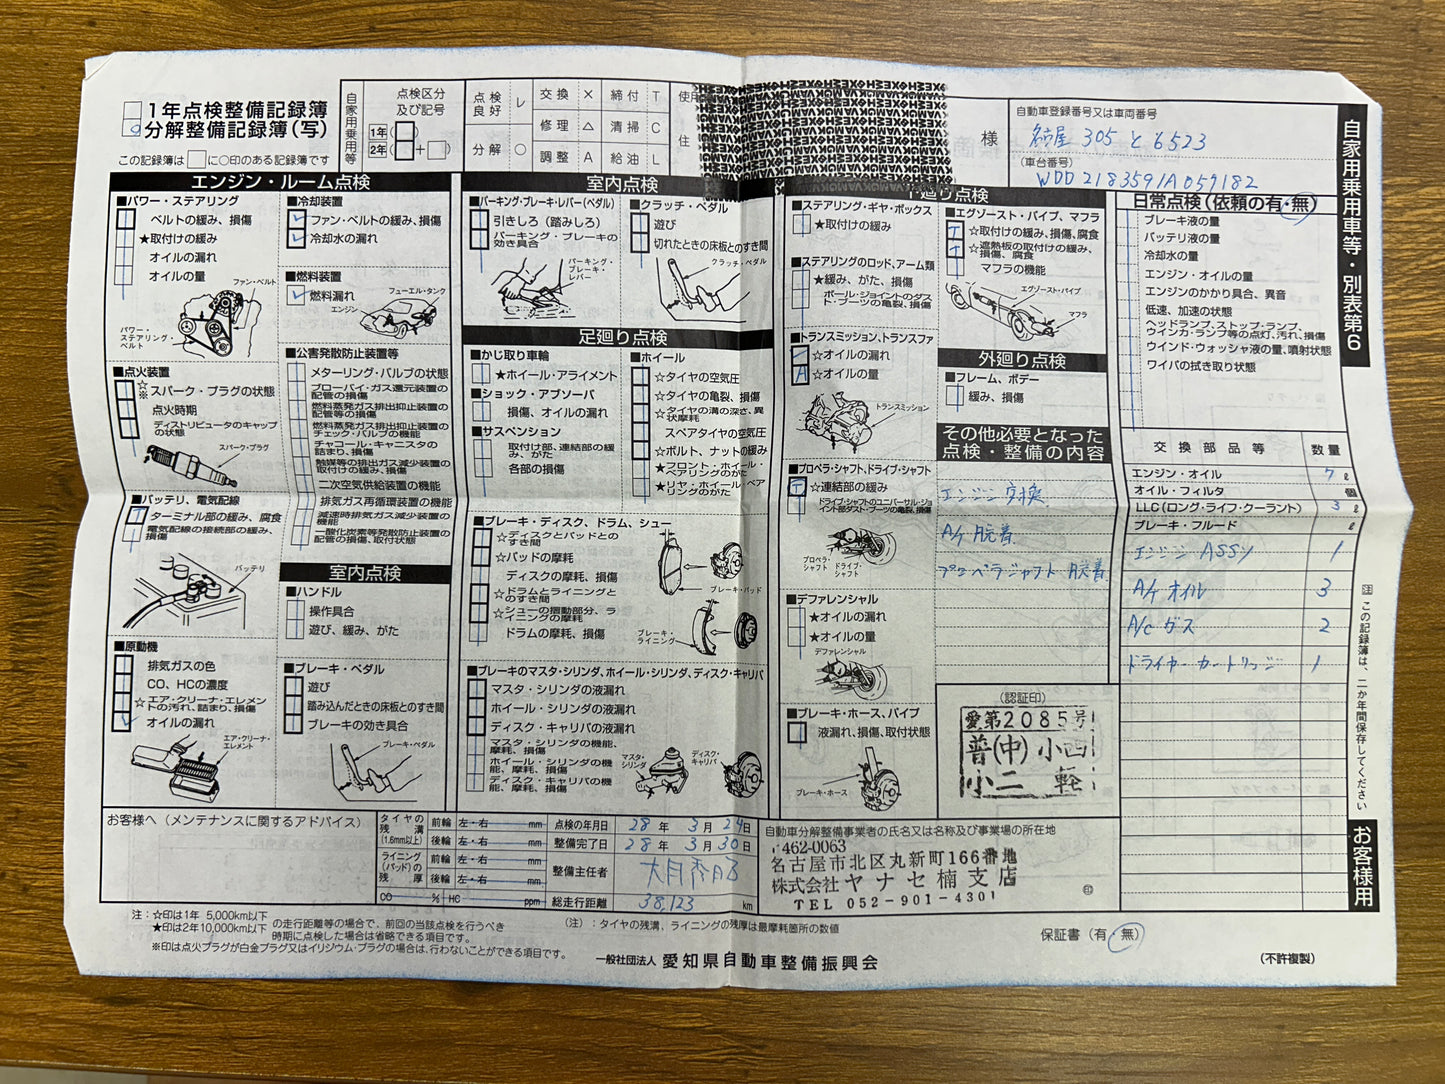 1年点検整備記録簿
分解整備記録簿(写)
この記録簿は□に○印のある記録簿です
自家用乗用等
点検区分
及び記号
1年( )
2年( + )
点検良好 レ
分解 ○
交換 ×
修理 △
調整 A
締付 T
清掃 C
給油 L
使
住
様
自動車登録番号又は車両番号
名古屋 305 と 6523
(車台番号)
WDD2183591A059182
自家用乗用車等・別表第6
エンジン・ルーム点検
■パワー・ステアリング
ベルトの緩み、損傷
★取付けの緩み
オイルの漏れ
オイルの量
ファン・ベルト
パワー・ステアリング・ベルト
■点火装置
☆※スパーク・プラグの状態
点火時期
ディストリビュータのキャップの状態
スパーク・プラグ
■バッテリ、電気配線
ターミナル部の緩み、腐食
電気配線の接続部の緩み、損傷
バッテリ
■原動機
排気ガスの色
CO、HCの濃度
☆エア・クリーナ・エレメントの汚れ、詰まり、損傷
オイルの漏れ
エア・クリーナ・エレメント
■冷却装置
ファン・ベルトの緩み、損傷
冷却水の漏れ
■燃料装置
燃料漏れ
フューエル・タンク
エンジン
■公害発散防止装置等
メターリング・バルブの状態
ブローバイ・ガス還元装置の配管の損傷
燃料蒸発ガス排出抑止装置の配管等の損傷
燃料蒸発ガス排出抑止装置のチェック・バルブの機能
チャコール・キャニスタの詰まり、損傷
触媒等の排出ガス減少装置の取付けの緩み、損傷
二次空気供給装置の機能
排気ガス再循環装置の機能
減速時排気ガス減少装置の機能
一酸化炭素等発散防止装置の配管の損傷、取付状態
室内点検
■ハンドル
操作具合
遊び、緩み、がた
■ブレーキ・ペダル
遊び
踏み込んだときの床板とのすき間
ブレーキの効き具合
ブレーキ・ペダル
室内点検
■パーキング・ブレーキ・レバー(ペダル)
引きしろ(踏みしろ)
パーキング・ブレーキの効き具合
パーキング・ブレーキ・レバー
■クラッチ・ペダル
遊び
切れたときの床板とのすき間
クラッチ・ペダル
足廻り点検
■かじ取り車輪
★ホイール・アライメント
■ショック・アブソーバ
損傷、オイルの漏れ
■サスペンション
取付け部、連結部の緩み、がた
各部の損傷
■ホイール
☆タイヤの空気圧
☆タイヤの亀裂、損傷
☆タイヤの溝の深さ、異状摩耗
スペアタイヤの空気圧
☆ボルト、ナットの緩み
★フロント・ホイール・ベアリングのがた
★リヤ・ホイール・ベアリングのがた
■ブレーキ・ディスク、ドラム、シュー
☆ディスクとパッドとのすき間
☆パッドの摩耗
ディスクの摩耗、損傷
☆ドラムとライニングとのすき間
☆シューの摺動部分、ライニングの摩耗
ドラムの摩耗、損傷
ブレーキ・パッド
ブレーキ・ライニング
■ブレーキのマスタ・シリンダ、ホイール・シリンダ、ディスク・キャリパ
マスタ・シリンダの液漏れ
ホイール・シリンダの液漏れ
ディスク・キャリパの液漏れ
マスタ・シリンダの機能、摩耗、損傷
ホイール・シリンダの機能、摩耗、損傷
ディスク・キャリパの機能、摩耗、損傷
マスタ・シリンダ
ディスク・キャリパ
廻り点検
■ステアリング・ギヤ・ボックス
★取付けの緩み
■ステアリングのロッド、アーム類
★緩み、がた、損傷
ボール・ジョイントのダストブーツの亀裂、損傷
■トランスミッション、トランスファ
☆オイルの漏れ
☆オイルの量
トランスミッション
■プロペラ・シャフト、ドライブ・シャフト
☆連結部の緩み
ドライブ・シャフトのユニバーサル・ジョイント部ダスト・ブーツの亀裂、損傷
プロペラ・シャフト
ドライブ・シャフト
■デファレンシャル
★オイルの漏れ
★オイルの量
デファレンシャル
■ブレーキ・ホース、パイプ
液漏れ、損傷、取付状態
ブレーキ・ホース
■エグゾースト・パイプ、マフラ
☆取付けの緩み、損傷、腐食
☆遮熱板の取付けの緩み、損傷、腐食
マフラの機能
エグゾースト・パイプ
マフラ
外廻り点検
■フレーム、ボデー
緩み、損傷
その他必要となった点検・整備の内容
エンジン 交換
A/T 脱着
プロペラシャフト 脱着
(認証印)
愛第2085号
普(中)小四
小二 軽
日常点検(依頼の有・無)
ブレーキ液の量
バッテリ液の量
冷却水の量
エンジン・オイルの量
エンジンのかかり具合、異音
低速、加速の状態
ヘッドランプ、ストップ・ランプ、ウインカ・ランプ等の点灯、汚れ、損傷
ウインド・ウォッシャ液の量、噴射状態
ワイパの拭き取り状態
交換部品等 数量
エンジン・オイル 7 ℓ
オイル・フィルタ 個
LLC(ロング・ライフ・クーラント) 3 ℓ
ブレーキ・フルード ℓ
エンジン ASSY 1
A/T オイル 3
A/C ガス 2
ドライヤーカートリッジ 1
注 この記録簿は、二か年間保存してください
お客様用
お客様へ(メンテナンスに関するアドバイス)
タイヤの残溝(1.6mm以上) 前輪 左・右 mm
後輪 左・右 mm
ライニング(パッド)の残厚 前輪 左・右
後輪 左・右 mm
CO % HC ppm
点検の年月日 28年 3月 24日
整備完了日 28年 3月 30日
整備主任者
総走行距離 38,123 km
自動車分解整備事業者の氏名又は名称及び事業場の所在地
〒462-0063
名古屋市北区丸新町166番地
株式会社ヤナセ楠支店
TEL 052-901-4301
印
注:☆印は1年 5,000km以下
★印は2年10,000km以下
の走行距離等の場合で、前回の当該点検を行うべき時期に点検した場合は省略できる項目です。
※印は点火プラグが白金プラグ又はイリジウム・プラグの場合は、行わないことができる項目です。
(注):タイヤの残溝、ライニングの残厚は最摩耗箇所の数値
保証書(有・無)
一般社団法人 愛知県自動車整備振興会
(不許複製)